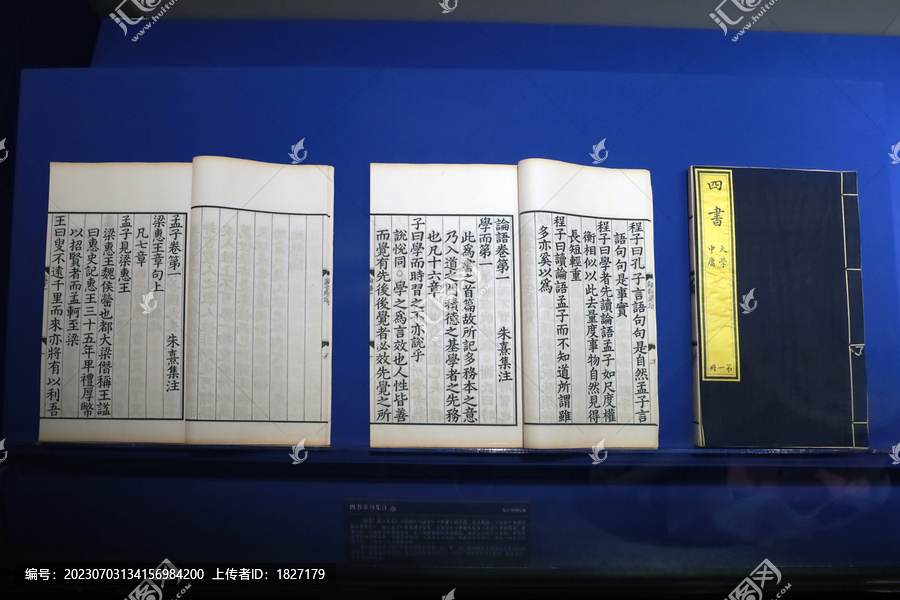 孟子卷第一 朱熹集注
梁惠王章句上
凡七章
孟子見梁惠王
梁惠王魏侯罃也都大梁僭稱王謚
曰惠史記惠王三十五年卑禮厚幣
以招賢者而孟軻至梁
王曰叟不遠千里而來亦將有以利吾
程子曰孔子言語句句是自然孟子言
語句句是事實
程子曰學者先讀論語孟子如尺度權
衡相似以此去量度事物自然見得
長短輕重
程子曰讀論語孟子而不知道所謂雖
多亦奚以為
論語卷第一 朱熹集注
學而第一
此為書之首篇故所記多務本之意
乃入道之門積德之基學者之先務
也凡十六章
子曰學而時習之不亦說乎
說悅同○學之為言效也人性皆善
而覺有先後後覺者必效先覺之所
四書
大學
中庸
第一冊
四书章句集注
编号：20230703134156984200 上传者ID：1827179